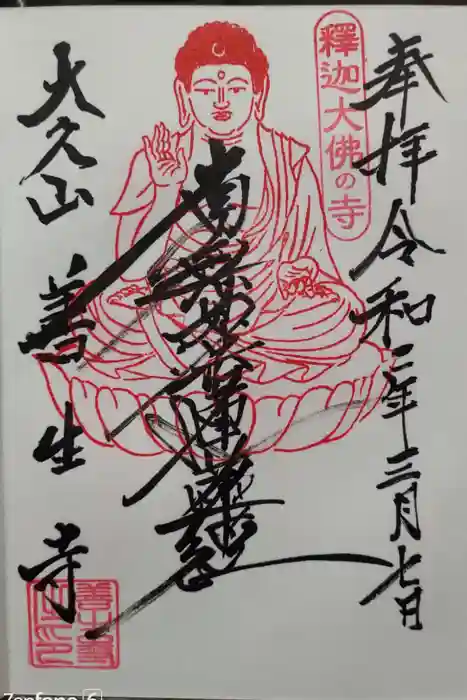 奉拝 令和二年三月七日
釋迦大佛の寺
南無妙法蓮華経
大久山 善生寺
善生寺之印
Zenfone 6